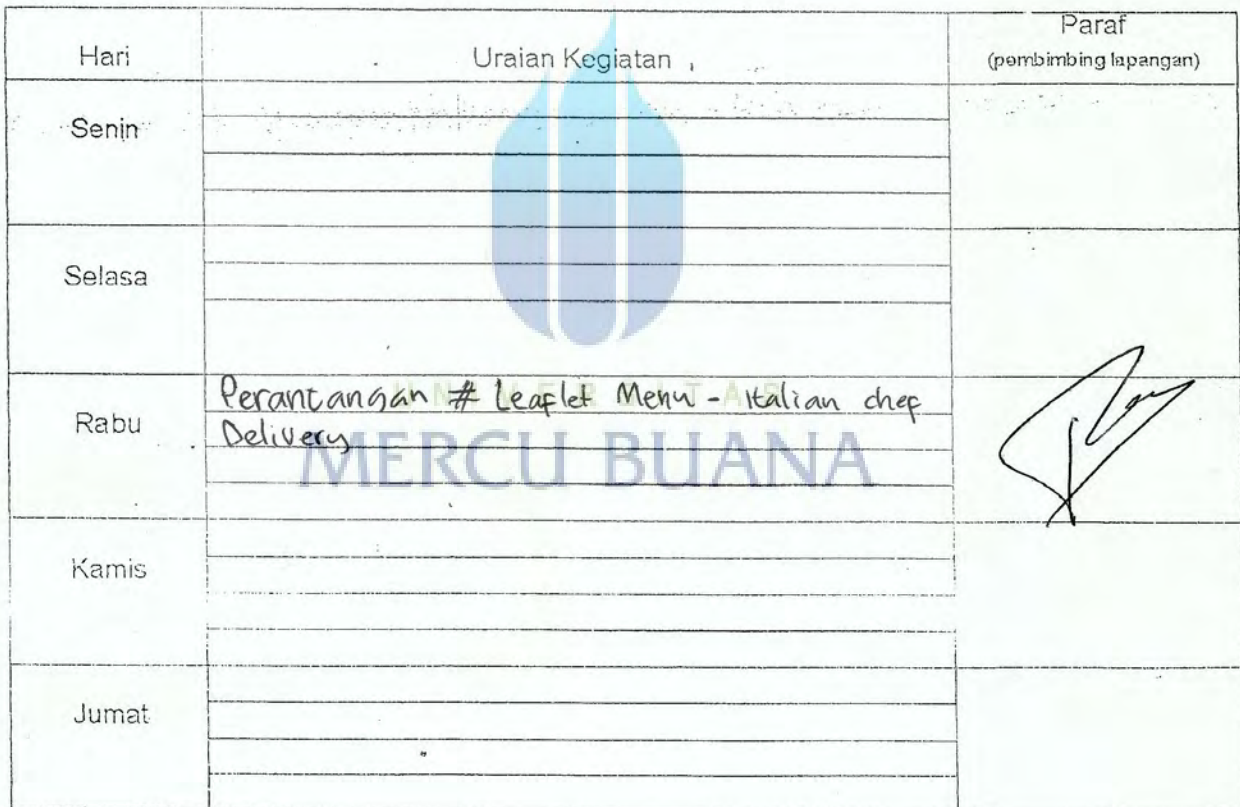 Hari
Uraian Kegiatan
Paraf
(pembimbing lapangan)
Senin
Selasa
Rabu
Perancangan # Leaflet Menu - Italian chef
Delivery
UNIVERSITAS
MERCU BUANA
Kamis
Jumat